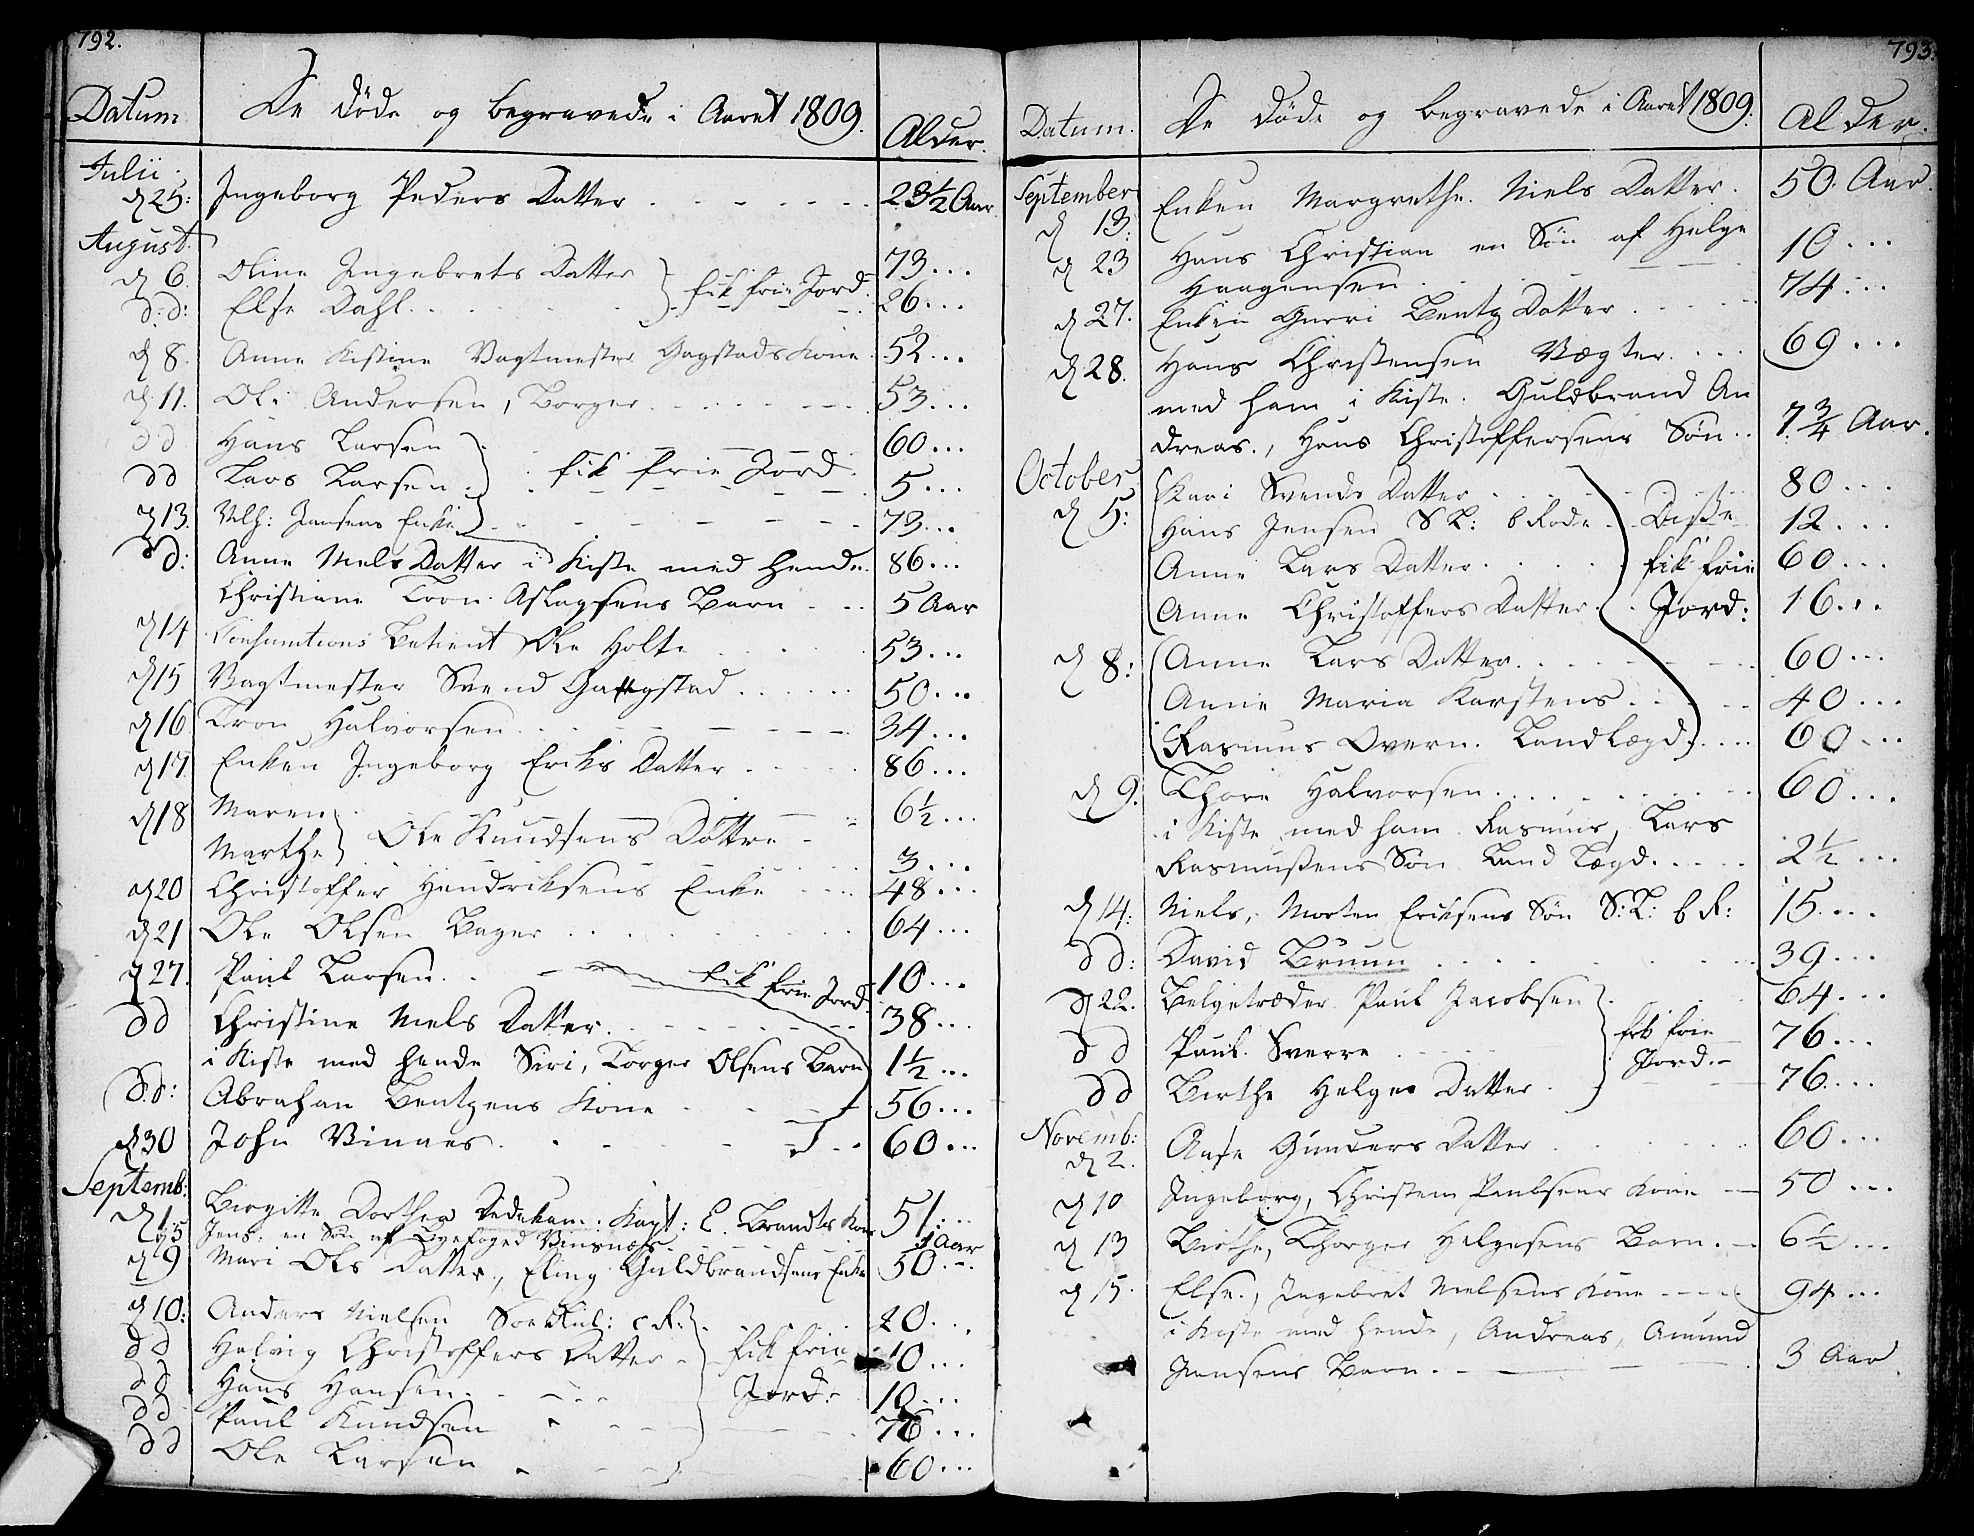 792.
Datum De døde og begravede i Aaret 1809. Alder.
Julii
d 25: Ingeborg Peders Datter 23½ Aar
August
d 6. Oline Ingebrets Datter 73...
d: d: Else Dahl fik frie Jord 26...
d 8. Anne Kistine Vagtmester Gagstads Kone 52...
d. 11. Ole Andersen, Borger 53...
d d Hans Larsen 60...
d d Lars Larsen fik frie Jord. 5...
d 13. Jansens Enke 73...
d: Anne Niels Datter i Kiste med hende 86...
Christiane Tron Aslagsens Barn 5 Aar
d 14 Consumtions Betient Ole Holte 53...
d 15 Vagtmester Svend Gaggstad 50...
d 16 Tron Halvorsen 34...
d 17 Enken Ingeborg Eriks Datter 86...
d 18 Maren 6½...
Marthe Ole Knudsens Døttre 3...
d 20 Christoffer Hendriksens Enke 48...
d 21 Ole Olsen Bager 64...
d 27. Paul Larsen fik frie Jord 10...
d d Christine Niels Datter 38...
i Kiste med hende Siri, Torger Olsens Barn 1½...
d. d: Abraham Bentzens Kone 56...
d 30 John Vinnes 60...
Septemb:
d 1 Birgitte Dorthea Dedekam: Kapt: C. Brandts Kone 51...
d 5 Jens: en Søn af Byefoged Vinsnes 1 Aar
d 9 Mari Ols Datter, Eling Guldbrandsens Enke 50...
d 10: Anders Nielsen c R: 20...
d d Helvig Christoffers Datter fik frie 10...
d d Hans Hansen Jord: 10...
d d Paul Knudsen 76...
d d Ole Larsen 60...
793.
Datum. De døde og begravede i Aaret 1809. Alder.
September
d 13: Enken Margrethe Niels Datter. 50. Aar.
d 23 Hans Christian en Søn af Helge 10...
Haagensen
d 27. Enken Gurri Bentz Datter 74...
d 28. Hans Christensen Vægter 69...
med ham i Kiste. Guldbrand An
dreas., Hans Christoffersens Søn 7¾ Aar.
October
d 5: Kari Svends Datter 80...
Hans Jensen S L: b Rode Disse 12...
Anne Lars Datter fik frie 60...
Anne Christoffers Datter Jord: 16...
d 8: Anne Lars Datter 60...
Anne Maria Karstens 40...
Rasmus Overn. Landlægd 60...
d 9. Thore Halvorsen 60...
i Kiste med ham Rasmus, Lars
Rasmusens Søn Land Lægd 2½...
d 14: Niels, Morten Eriksens Søn S: L: b R: 15...
d d: David Bruun 39...
d 22. Belgetræder Paul Jacobsen 64...
d d Paul Sverre fik frie 76...
d d Birthe Helges Datter Jord. 76...
Novemb:
d 2. Aase Gunders Datter 60...
d 10 Ingeborg, Christen Paulsens Kone 50...
d 13 Birthe, Thorger Helgesens Barn. 6½...
d 15. Else., Ingebret Nielsens Kone 94...
i Kiste med hende, Andreas, Amund
Jansens Barn 3 Aar.